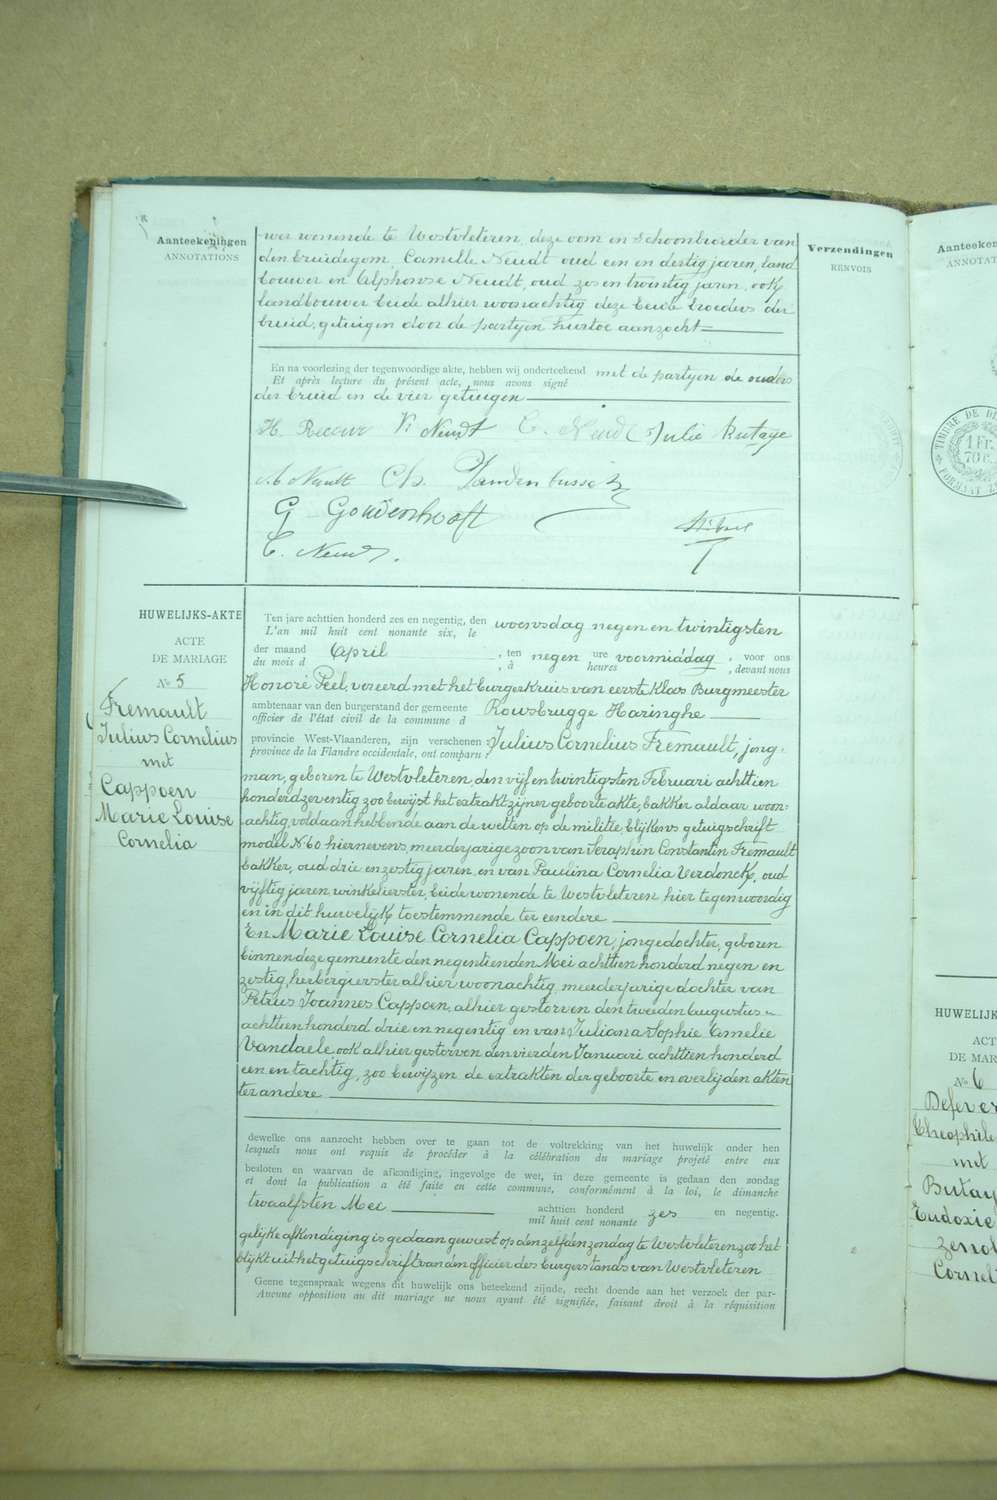 Aanteekeningen
ANNOTATIONS
wer wonende te Westvleteren, deze oom en schoonbroeder van
den bruidegom Camille Neudt oud een en dertig jaren, land
bouwer en Alphonse Neudt, oud zes en twintig jaren, ook
landbouwer beide alhier woonachtig deze beide broeders der
bruid, getuigen door de partyen hiertoe aanzocht
Verzendingen
RENVOIS
En na voorlezing der tegenwoordige akte, hebben wij onderteekend met de partyen de ouders
Et après lecture du présent acte, nous avons signé
der bruid en de vier getuigen
H. Recour Vi Neudt C. Neudt Julie Rutaye
Ch. Vandenbussche
G Goudenhooft
C. Neudt.
HUWELIJKS-AKTE
ACTE
DE MARIAGE
No 5
Fremault
Julius Cornelius
met
Cappoen
Marie Louise
Cornelia
Ten jare achttien honderd zes en negentig, den woensdag negen en twintigsten
L'an mil huit cent nonante six, le
der maand April , ten negen ure voormiddag , voor ons
du mois d , à heures , devant nous
Honoré Peel, vereerd met het burgerkruis van eerste klas Burgmeester
ambtenaar van den burgerstand der gemeente Rousbrugge Haringhe
officier de l'état civil de la commune d
provincie West-Vlaanderen, zijn verschenen : Julius Cornelius Fremault, jong-
province de la Flandre occidentale, ont comparu :
man, geboren te Westvleteren, den vijf en twintigsten Februari achttien
honderd zeventig zoo bewijst het extrakt zijner geboorte akte, bakker aldaar woon=
achtig, voldaan hebbende aan de wetten op de militie, blijkens getuigschrift
model N. 60 hiernevens, meerderjarige zoon van Seraphin Constantin Fremault
bakker, oud drie en zestig jaren, en van Paulina Cornelia Verdonck, oud
vijftig jaren, winkelierster, beide wonende te Westvleteren hier tegenwoordig
en in dit huwelijk toestemmende ter eendere
En Marie Louise Cornelia Cappoen, jongedochter, geboren
binnen deze gemeente den negentienden Mei achttien honderd negen en
zestig, herbergierster alhier woonachtig, meerderjarige dochter van
Petrus Joannes Cappoen, alhier gestorven den tweeden Augustus
achttien honderd drie en negentig en van Juliana Sophie Amelie
Vandaele, ook alhier gestorven den vierden Januari achttien honderd
een en tachtig, zoo bewijzen de extrakten der geboorte en overlijden akten
ter andere
dewelke ons aanzocht hebben over te gaan tot de voltrekking van het huwelijk onder hen
lesquels nous ont requis de procéder à la célébration du mariage projeté entre eux
besloten en waarvan de afkondiging, ingevolge de wet, in deze gemeente is gedaan den zondag
et dont la publication a été faite en cette commune, conformément à la loi, le dimanche
twaalfsten Mei achttien honderd zes en negentig.
mil huit cent nonante
gelijke afkondiging is gedaan geweest op den zelfden zondag te Westvleteren zoo het
blijkt uit het getuigschrift van den officier des burgerstands van Westvleteren
Geene tegenspraak wegens dit huwelijk ons beteekend zijnde, recht doende aan het verzoek der par-
Aucune opposition au dit mariage ne nous ayant été signifiée, faisant droit à la réquisition
Aanteeken
ANNOTAT
TIMBRE DE DI
1 Fr.
70 c.
FORMAAT
HUWELIJK
ACT
DE MAR
No 6
Defever
Theophile
met
Butay
Eudoxie
Zenol
Cornel